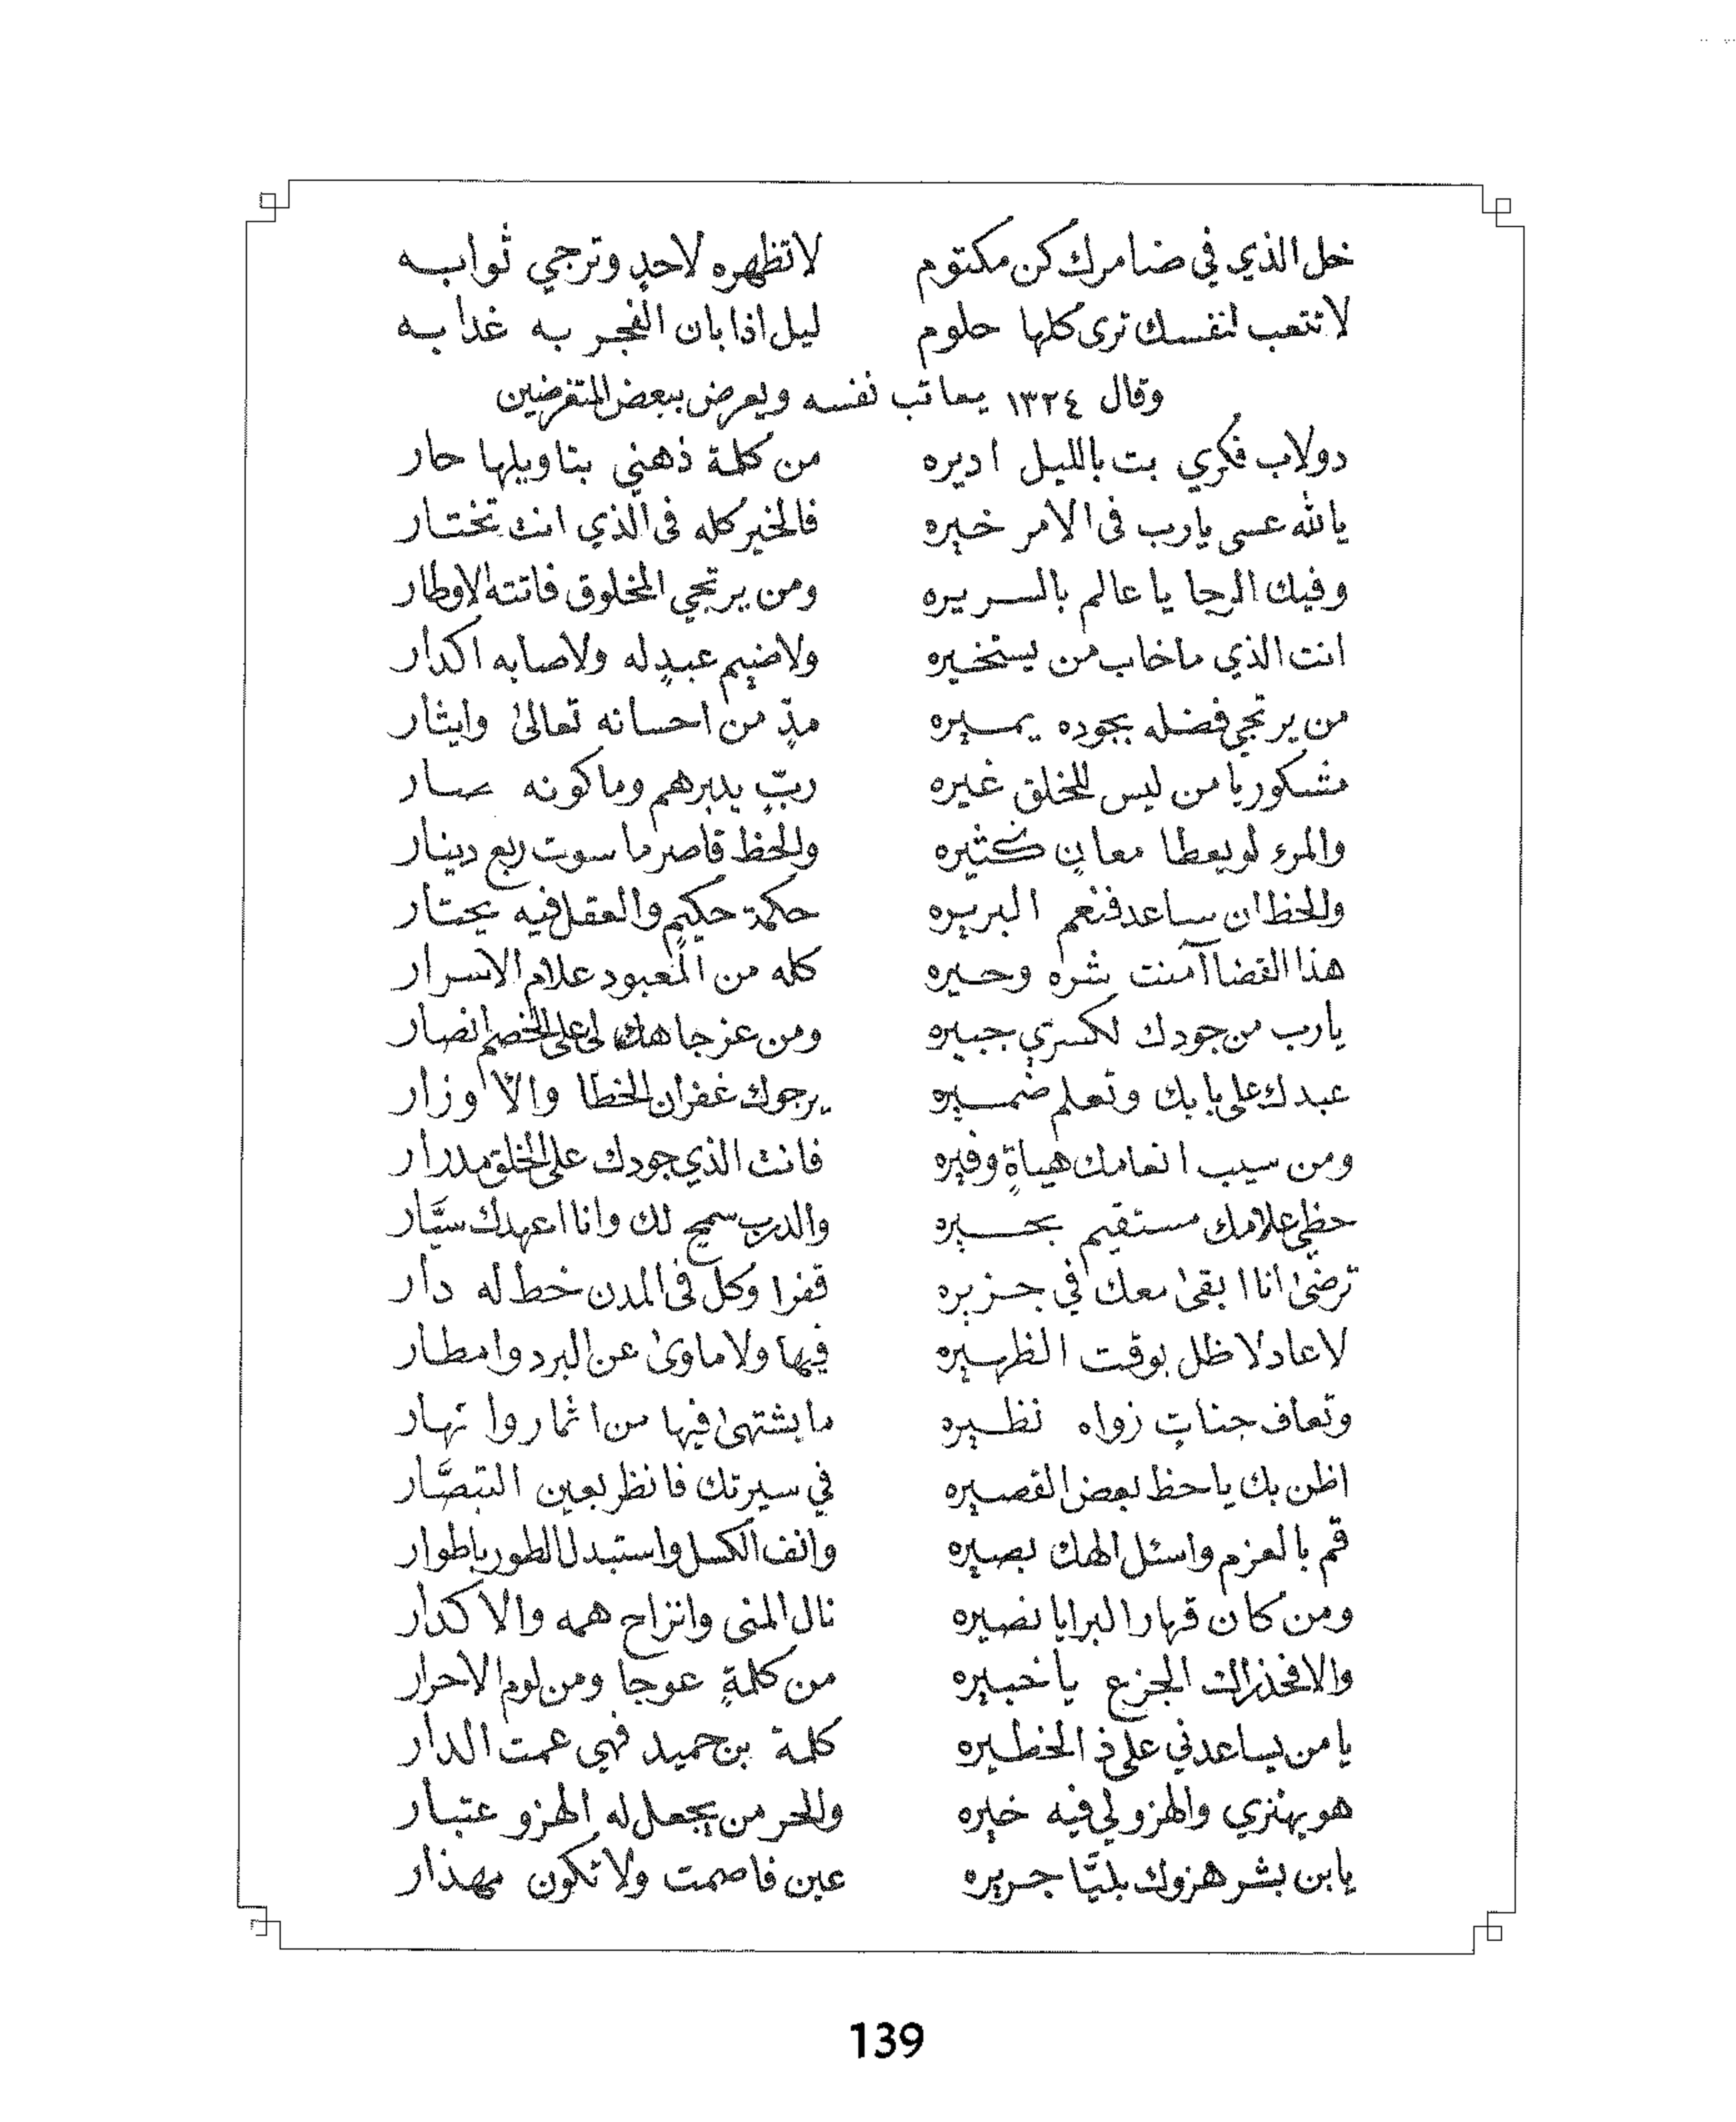 خل الذي في ضامرك كن مكتوم لا تظهره لاحدٍ وترجي ثوابه
لا تتعب لنفسك ترى كلها حلوم ليل اذا بان الفجر به غدا به
وقال ١٣٢٤ يعاتب نفسه ويعرض ببعض المتغرضين
دولاب فكري بت بالليل اديره من كلمة ذهني بتاويلها حار
يالله عسى يارب فى الامر خيره فالخير كله فى الذي انت تختار
وفيك الرجا يا عالم بالسريره ومن يرتجي المخلوق فاتته الاوطار
انت الذي ما خاب من يستخيره ولا ضيم عبدٍ له ولا صابه اكدار
من يرتجي فضله بجوده يميره مدٍّ من احسانه تعالىٰ وايثار
مشكور يا من ليس للخلق غيره ربٍّ يدبرهم وما كونه صار
والمرء لو يعطا معانٍ كثيره والحظ قاصر ما سوت ربع دينار
والحظ ان ساعد فنعم البريره حكمة حكيمٍ والعقل فيه يحتار
هذا القضا آمنت شره وخيره كله من المعبود علام الاسرار
يارب من جودك لكسري جبيره ومن عز جاهك لى على الخصم انصار
عبدك على بابك وتعلم ضميره يرجوك غفران الخطا والاوزار
ومن سيب انعامك هباةٍ وفيره فانت الذي جودك على الخلق مدرار
حظي علامك مستقيم بحيره والدرب سمح لك وانا اعهدك سيَّار
ترضىٰ انا ابقىٰ معك في جزيره قفرا وكل فى المدن خط له دار
لا عاد لا ظل بوقت الظهيره فيها ولا ماوىٰ عن البرد وامطار
وتعاف جناتٍ زواه نظيره ما يشتهىٰ فيها من اثمار وانهار
اظن بك يا حظ بعض القصيره في سيرتك فانظر بعين التبصَّار
قم بالعزم واسئل الهك بصيره وانف الكسل واستبدل الطور باطوار
ومن كان قهار البرايا نصيره نال المنى وانزاح همه والاكدار
والا فخذراك الجزع يا خبيره من كلمةٍ عوجا ومن لوم الاحرار
يا من يساعدني على ذ الخطيره كلمة بن حميد فهي عمت الدار
هو يهنزي والهزو لي فيه خيره وللحر من يجعل له الهزو عتبار
يا بن بشر هزوك بليَّا جريره عين فاصمت ولا تكون مهذار
139